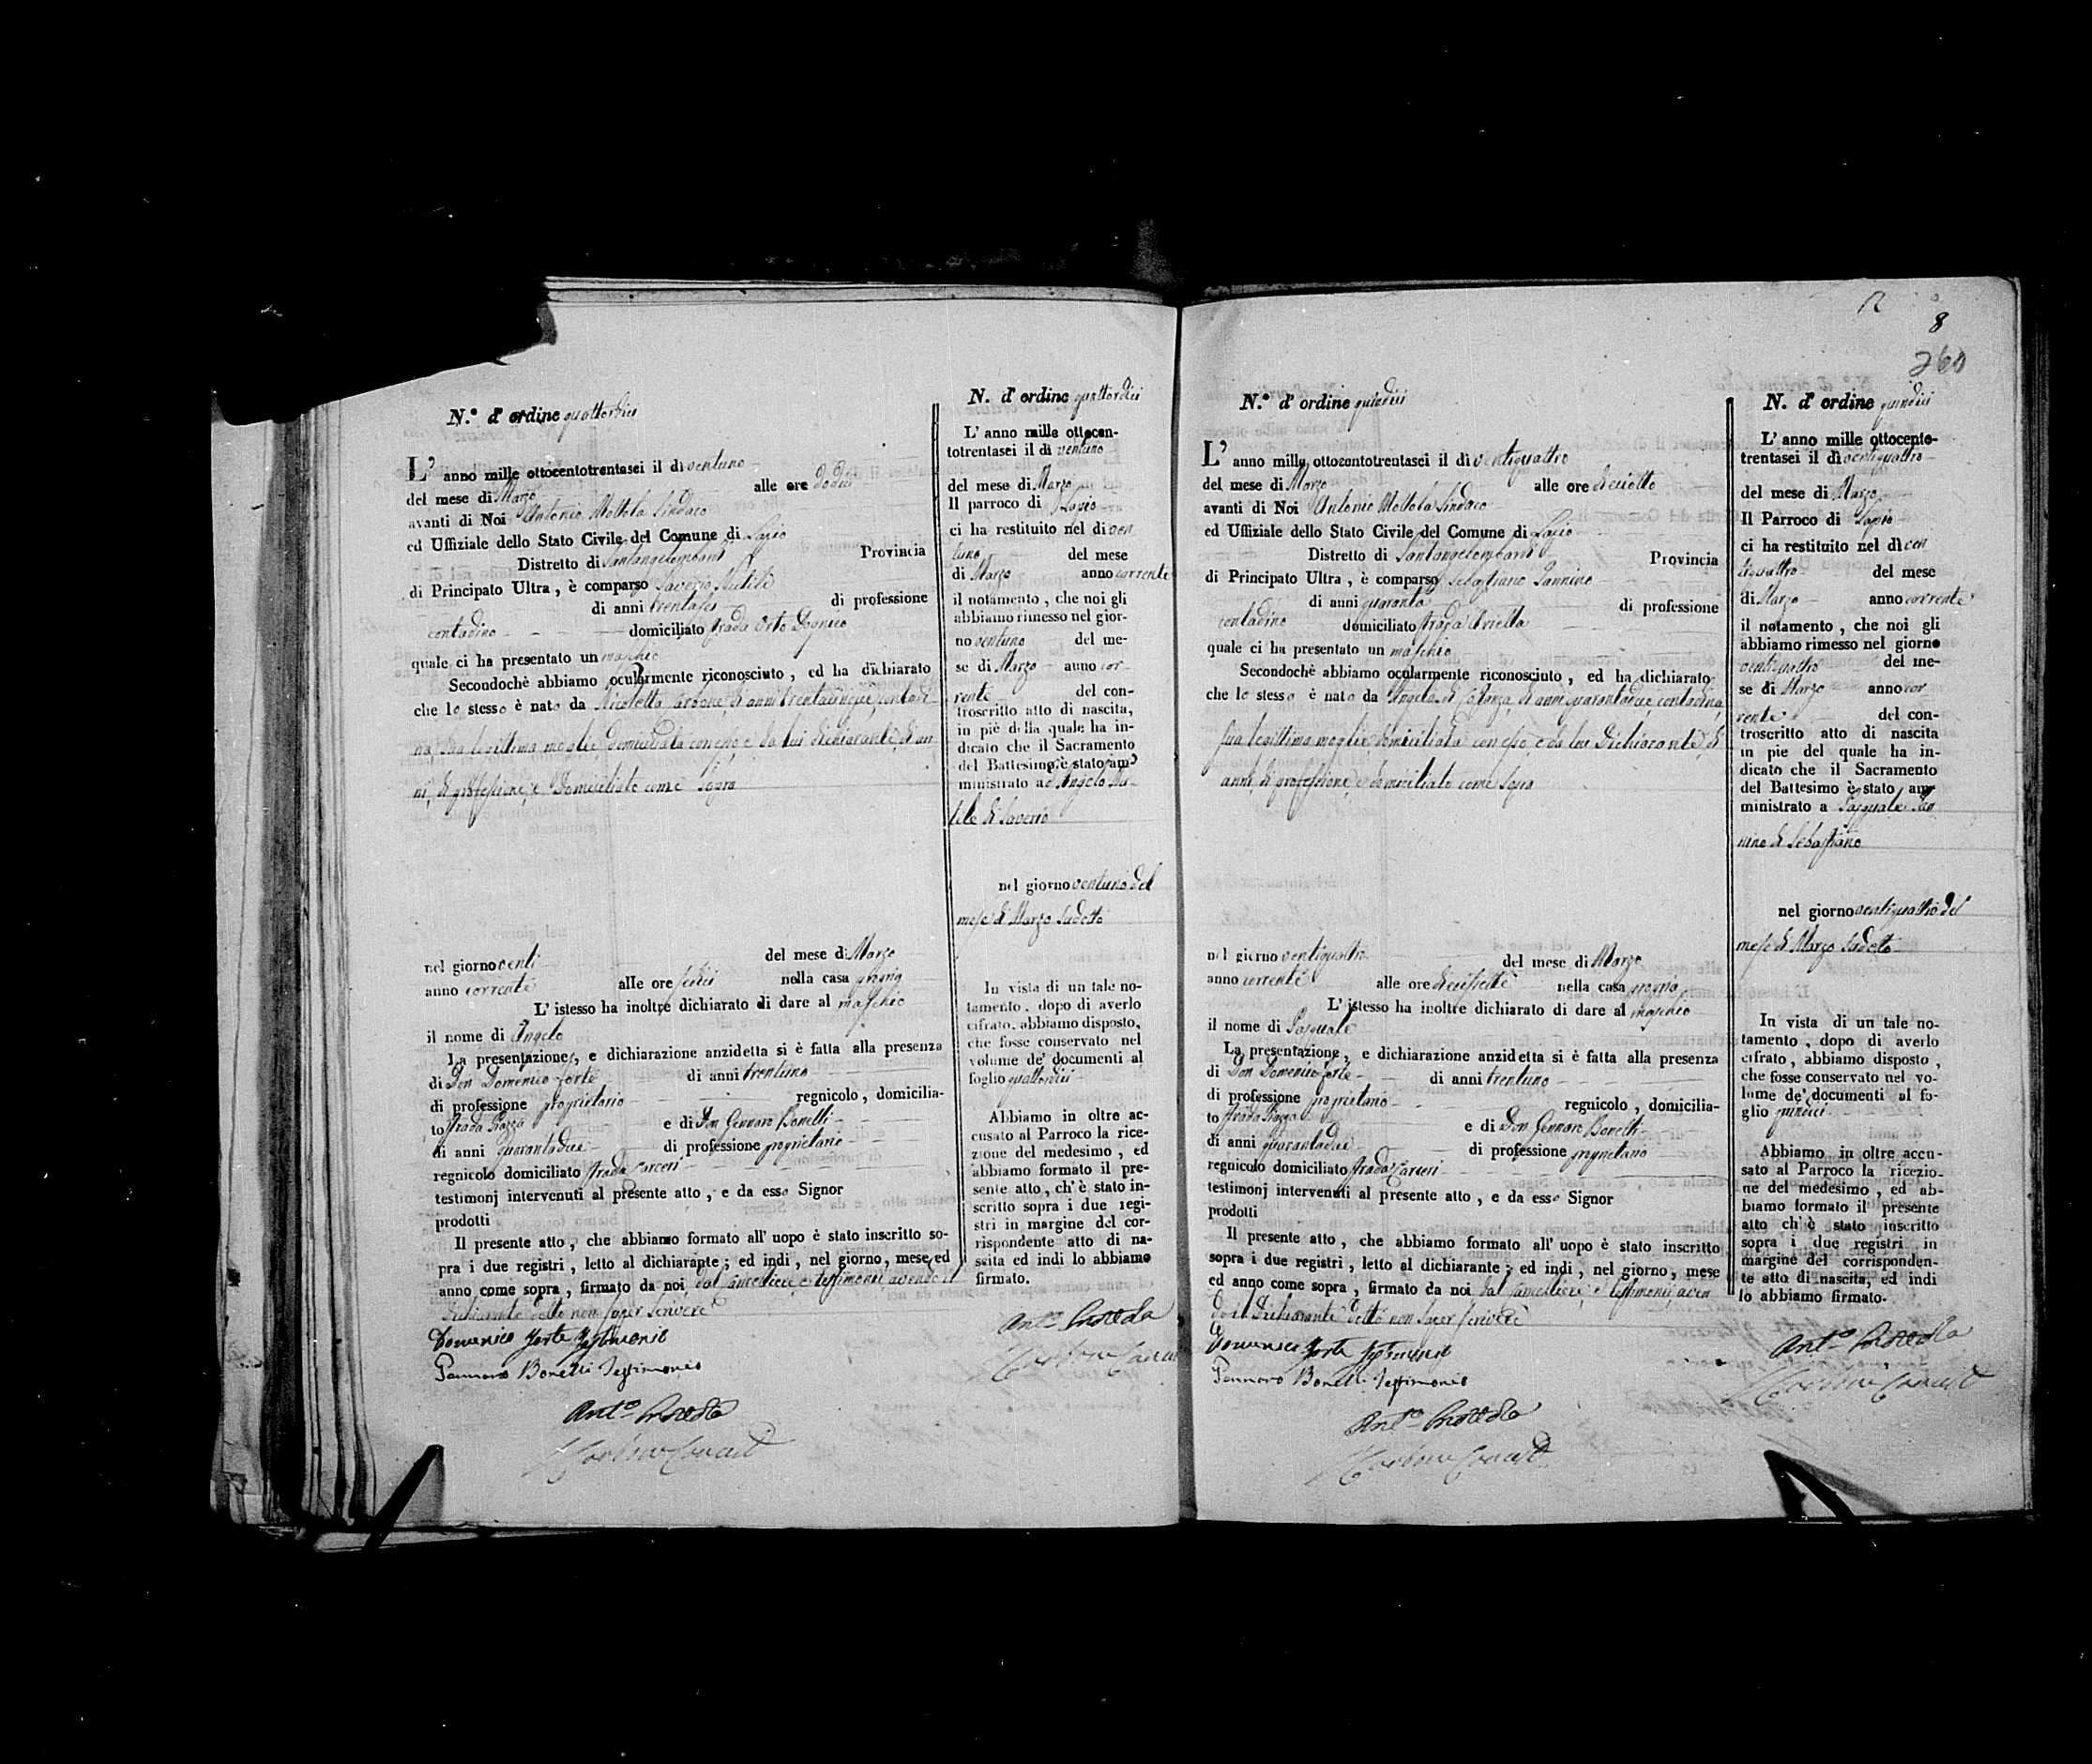 N.º d' ordine quattordici
L' anno mille ottocentotrentasei il dì ventuno
del mese di Marzo alle ore dodici
avanti di Noi Antonio Mottola Sindaco
ed Uffiziale dello Stato Civile del Comune di Lapio
Distretto di Santangelombardi Provincia
di Principato Ultra , è comparso Saverio
di anni trentasei di professione
contadino domiciliato strada Orto
quale ci ha presentato un maschio
Secondochè abbiamo ocularmente riconosciuto , ed ha dichiarato
che lo stesso è nato da Nicoletta Carbone, di anni trentacinque, contadi
na, sua legittima moglie, domiciliata con esso, e da lui dichiarante, di an
ni, di professione, e domiciliato come sopra
nel giorno venti del mese di Marzo
anno corrente alle ore sedici nella casa propria
L' istesso ha inoltre dichiarato di dare al maschio
il nome di Angelo
La presentazione , e dichiarazione anzidetta si è fatta alla presenza
di Don Domenico Forte di anni trentuno
di professione proprietario regnicolo , domicilia-
to strada Piazza e di Don Gennaro Bonelli
di anni quarantadue di professione proprietario
regnicolo domiciliato strada Carceri
testimonj intervenuti al presente atto , e da esso Signor
prodotti
Il presente atto , che abbiamo formato all' uopo è stato inscritto so-
pra i due registri , letto al dichiarante ; ed indi , nel giorno , mese, ed
anno come sopra , firmato da noi, dal cancelliere, e testimonii avendo il
dichiarante detto non saper scrivere
Domenico Forte Testimonio
Gennaro Bonelli Testimonio
Ant.º Mottola
N. d' ordine quattordici
L' anno mille ottocen-
totrentasei il dì ventuno
del mese di Marzo
Il parroco di Lapio
ci ha restituito nel dì ven
tuno del mese
di Marzo anno corrente
il notamento , che noi gli
abbiamo rimesso nel gior-
no ventuno del me-
se di Marzo anno cor-
rente del con-
troscritto atto di nascita,
in piè della quale ha in-
dicato che il Sacramento
del Battesimo è stato am-
ministrato ad Angelo
di Saverio
nel giorno ventuno del
mese di Marzo sudetto
In vista di un tale no-
tamento , dopo di averlo
cifrato, abbiamo disposto,
che fosse conservato nel
volume de' documenti al
foglio quattordici
Abbiamo in oltre ac-
cusato al Parroco la rice-
zione del medesimo , ed
abbiamo formato il pre-
sente atto , ch' è stato in-
scritto sopra i due regi-
stri in margine del cor-
rispondente atto di na-
scita ed indi lo abbiamo
firmato.
Ant.º Mottola
8
360
N.º d' ordine quindici
L' anno mille ottocentotrentasei il dì ventiquattro
del mese di Marzo alle ore dieciotto
avanti di Noi Antonio Mottola Sindaco
ed Uffiziale dello Stato Civile del Comune di Lapio
Distretto di Santangelombardi Provincia
di Principato Ultra , è comparso Sebastiano Iannino
di anni quaranta di professione
contadino domiciliato strada Ariella
quale ci ha presentato un maschio
Secondochè abbiamo ocularmente riconosciuto , ed ha dichiarato
che lo stesso è nato da Angela di Costanza, di anni quarantadue, contadina,
sua legittima moglie, domiciliata con esso, e da lui dichiarante, di
anni, di professione, e domiciliato come sopra
nel giorno ventiquattro del mese di Marzo
anno corrente alle ore diecisette nella casa propria
L' istesso ha inoltre dichiarato di dare al maschio
il nome di Pasquale
La presentazione , e dichiarazione anzidetta si è fatta alla presenza
di Don Domenico Forte di anni trentuno
di professione proprietario regnicolo , domicilia-
to strada Piazza e di Don Gennaro Bonelli
di anni quarantadue di professione proprietario
regnicolo domiciliato strada Carceri
testimonj intervenuti al presente atto , e da esso Signor
prodotti
Il presente atto , che abbiamo formato all' uopo è stato inscritto
sopra i due registri , letto al dichiarante ; ed indi , nel giorno , mese
ed anno come sopra , firmato da noi, dal cancelliere, e testimonii, aven
do il dichiarante detto non saper scrivere
Domenico Forte Testimonio
Gennaro Bonelli Testimonio
Ant.º Mottola
N. d' ordine quindici
L' anno mille ottocento-
trentasei il dì ventiquattro
del mese di Marzo
Il Parroco di Lapio
ci ha restituito nel dì ven
tiquattro del mese
di Marzo anno corrente
il notamento , che noi gli
abbiamo rimesso nel giorno
ventiquattro del me-
se di Marzo anno cor
rente del con-
troscritto atto di nascita
in pie del quale ha in-
dicato che il Sacramento
del Battesimo è stato am-
ministrato a Pasquale Ian
nino di Sebastiano
nel giorno ventiquattro del
mese di Marzo sudetto
In vista di un tale no-
tamento , dopo di averlo
cifrato , abbiamo disposto ,
che fosse conservato nel vo-
lume de' documenti al fo-
glio quindici
Abbiamo in oltre accu-
sato al Parroco la ricezio-
ne del medesimo , ed ab-
biamo formato il presente
atto ch' è stato inscritto
sopra i due registri in
margine del corrisponden-
te atto di nascita, ed indi
lo abbiamo firmato.
Ant.º Mottola